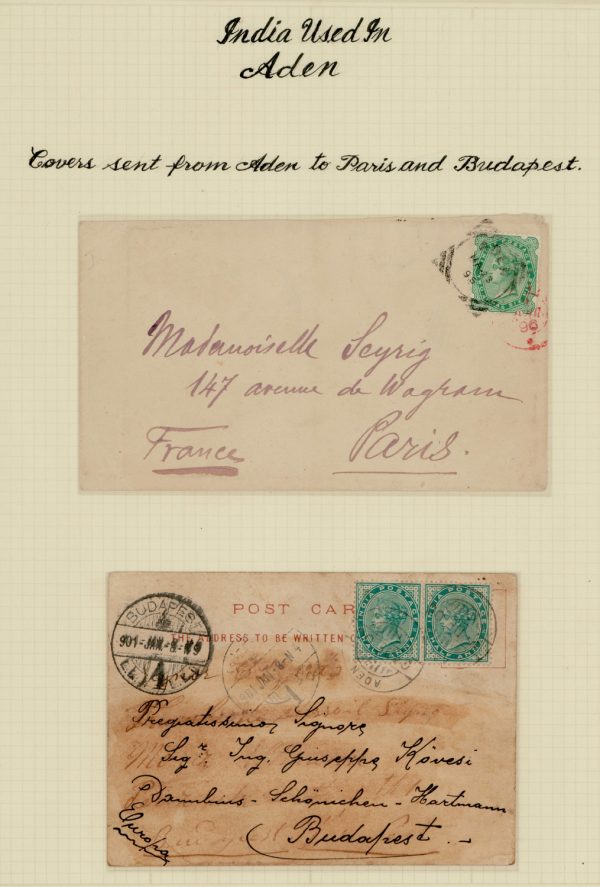 India Used In
Aden
Covers sent from Aden to Paris and Budapest.
Mademoiselle Seyrig
147 avenue de Wagram
France Paris.
POST CAR
THE ADDRESS TO BE WRITTEN
BUDAPEST
901-JAN-8-N9
ADEN
INDIA POSTAGE
INDIA POSTAGE
Pregiatissimo Signore
Sigr. Ing. Giuseppe Kövesi
Danubius-Schönichen-Hartmann
Budapest.
Europa